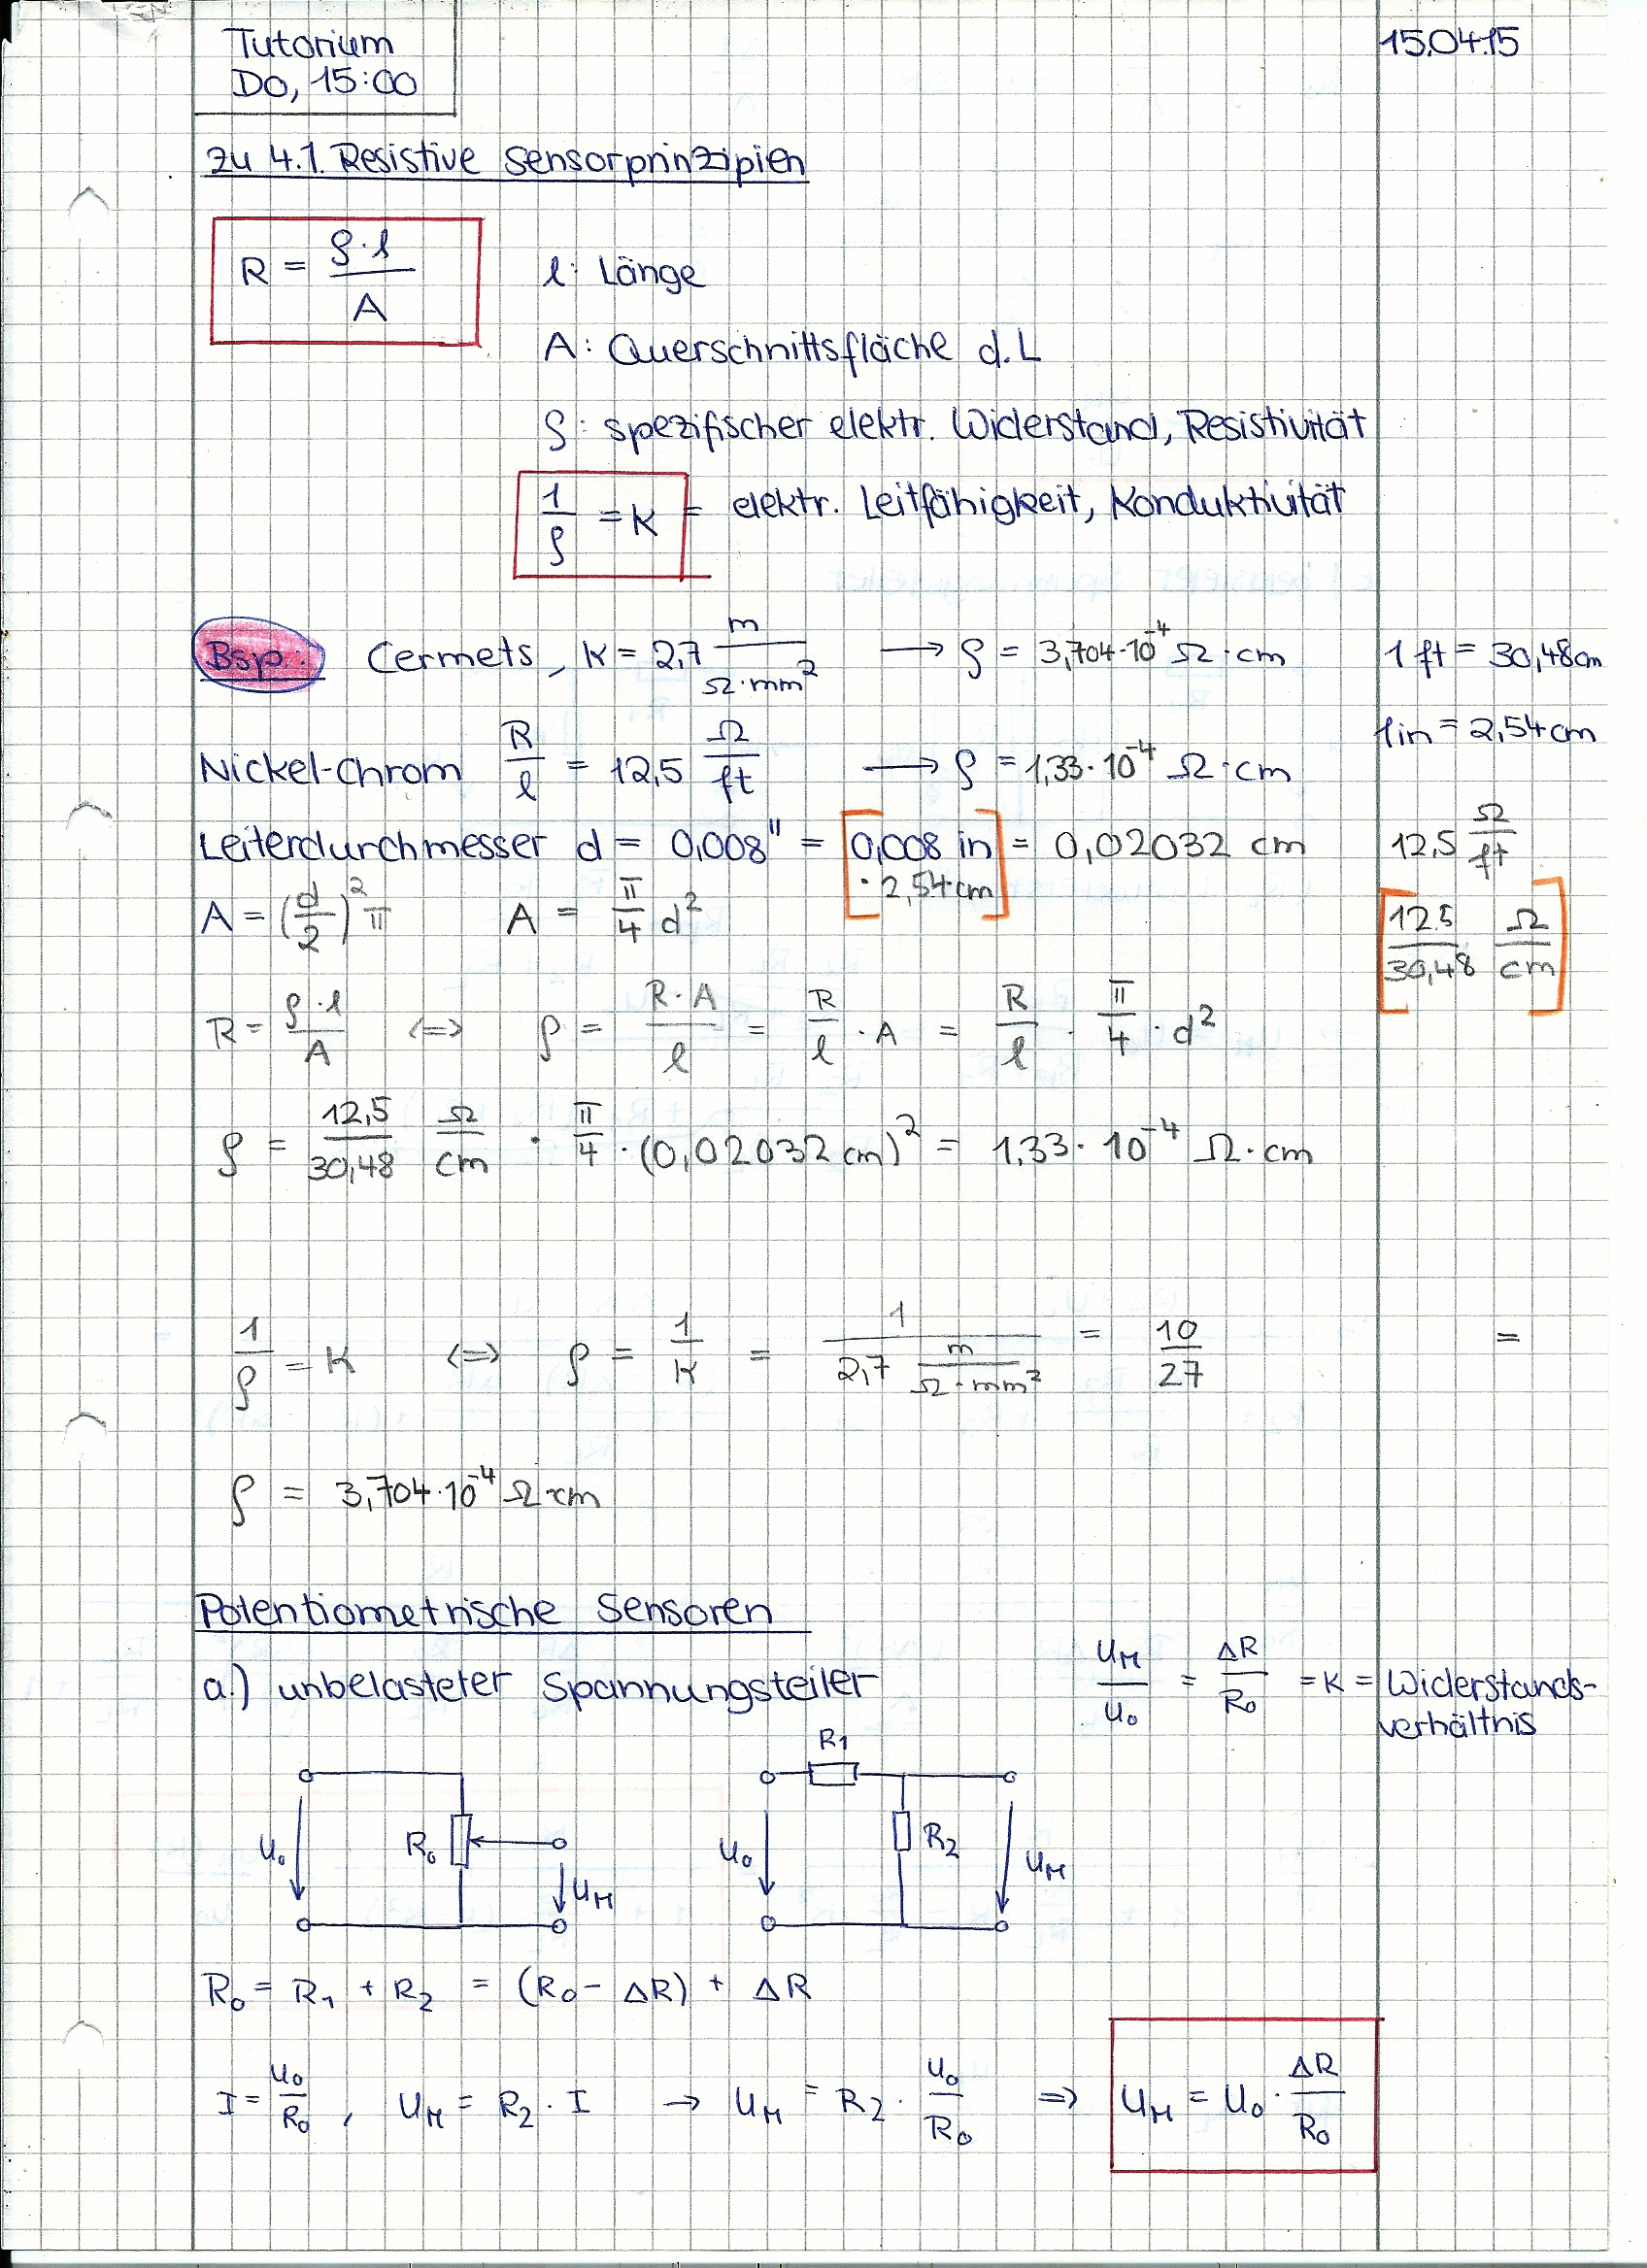 Tutorium
Do, 15:00
15.04.15
zu 4.1. Resistive Sensorprinzipien
R = ρ·l / A
l: Länge
A: Querschnittsfläche d. L
ρ: spezifischer elektr. Widerstand, Resistivität
1/ρ = K = elektr. Leitfähigkeit, Konduktivität
Bsp.: Cermets, K = 2,7 m / Ω·mm² → ρ = 3,704·10⁻⁴ Ω·cm
1 ft = 30,48 cm
Nickel-Chrom R/l = 12,5 Ω/ft → ρ = 1,33·10⁻⁴ Ω·cm
1 in = 2,54 cm
Leiterdurchmesser d = 0,008" = [0,008 in · 2,54 cm] = 0,02032 cm
12,5 Ω/ft
A = (d/2)² π A = π/4 d²
[12,5/30,48 Ω/cm]
R = ρ·l / A <=> ρ = R·A / l = R/l · A = R/l · π/4 · d²
ρ = 12,5/30,48 Ω/cm · π/4 · (0,02032 cm)² = 1,33 · 10⁻⁴ Ω·cm
1/ρ = K <=> ρ = 1/K = 1 / (2,7 m / Ω·mm²) = 10/27 =
ρ = 3,704·10⁻⁴ Ω·cm
Potentiometrische Sensoren
a.) unbelasteter Spannungsteiler
U_M/U_0 = ΔR/R_0 = K = Widerstands-
verhältnis
U_0 R_0 U_M
R_1 U_0 R_2 U_M
R_0 = R_1 + R_2 = (R_0 - ΔR) + ΔR
I = U_0/R_0 , U_M = R_2 · I → U_M = R_2 · U_0/R_0 => U_M = U_0 · ΔR/R_0